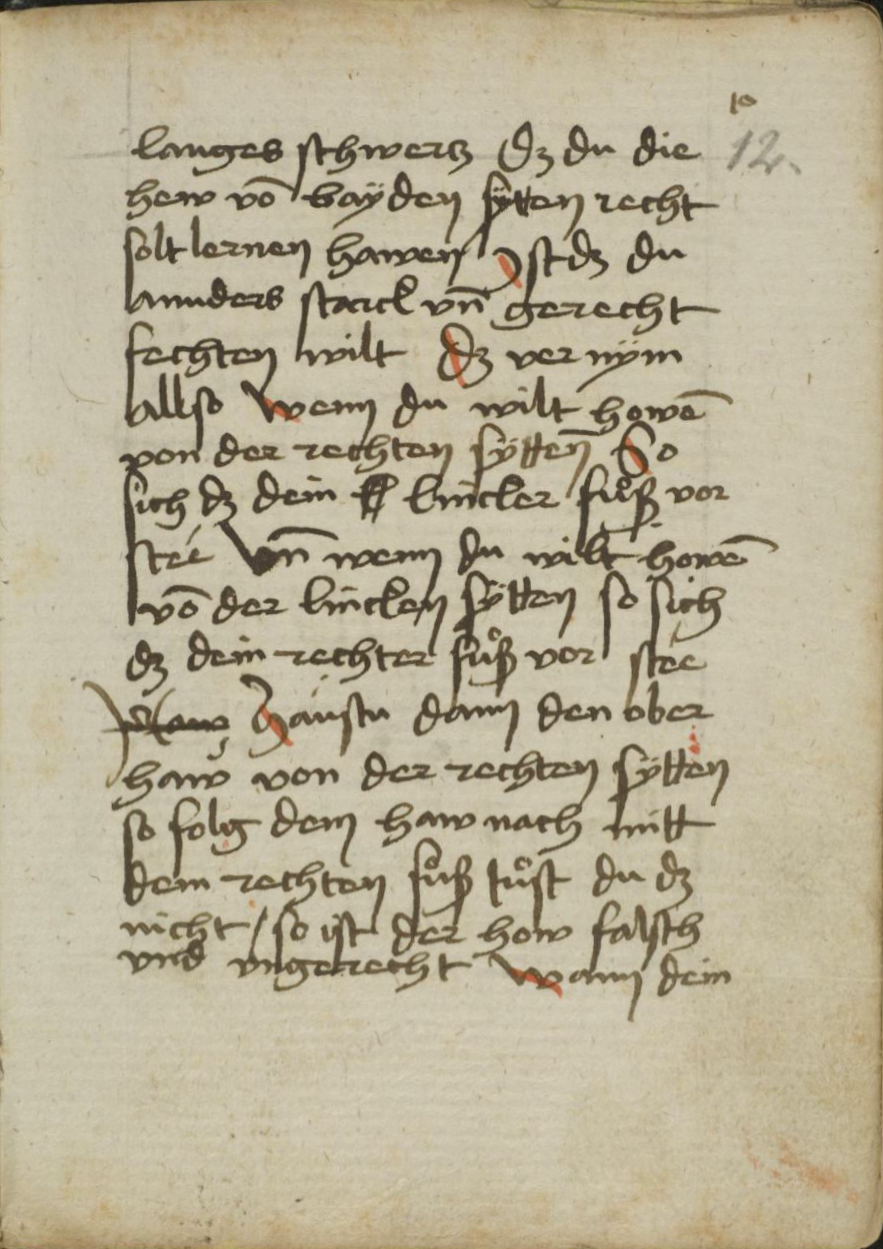 10
12.
langes schwertz Dz du die
hew vō bayden sÿtten recht
solt lernen hawen Ist dz du
annders starck vn̄ gerecht
fechten wilt Dz ver nÿm
allso Wenn du wilt howē
von der rechten sÿtten̄ So
sich dz dein lincker fůß vor
stee Vn̄ wenn du wilt howē
vō der lincken sÿtten so sich
dz dein rechter fůß vor stee
Haustu dann den ober
haw von der rechten sÿtten
so folg dem haw nach mitt
dem rechten fůß tůst du dz
nicht / so ist der how falsch
vnd vngerecht Wann dein